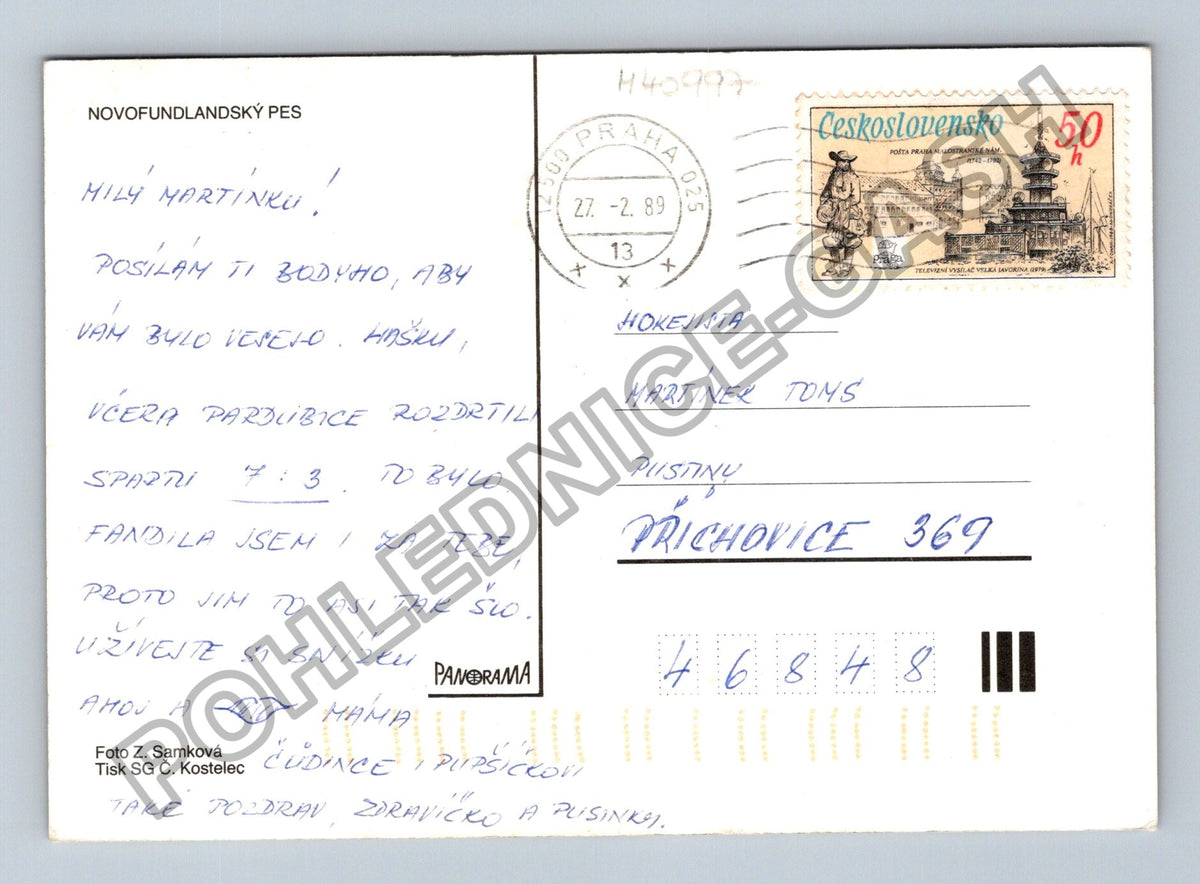 H40997
NOVOFUNDLANDSKÝ PES
MILÝ MARTÍNKU!
POSÍLÁM TI BODYHO, ABY
VÁM BYLO VESELO. HAŠKU,
VČERA PARDUBICE ROZDRTILI
SPARTU 7:3. TO BYLO,
FANDILA JSEM I ZA TEBE
PROTO JIM TO ASI TAK ŠLO.
UŽÍVEJTE SI SNÍŽKU
AHOJ A MÁMA
ČŮDINCE I PUPŠÍČKOVI
TAKÉ POZDRAV, ZDRAVÍČKO A PUSINKY.
PANORAMA
Foto Z. Samková
Tisk SG Č. Kostelec
12500 PRAHA 025
27. -2. 89
13
x x x
Československo
50 h
POŠTA PRAHA MALOSTRANSKÉ NÁM.
(1742–1792)
Praga
TELEVIZNÍ VYSÍLAČ VELKÁ JAVOŘINA (1979)
HOKEJISTA
MARTÍNEK TOMS
PUSTINY
PŘÍCHOVICE 369
46848
POHLEDNICE-CASH